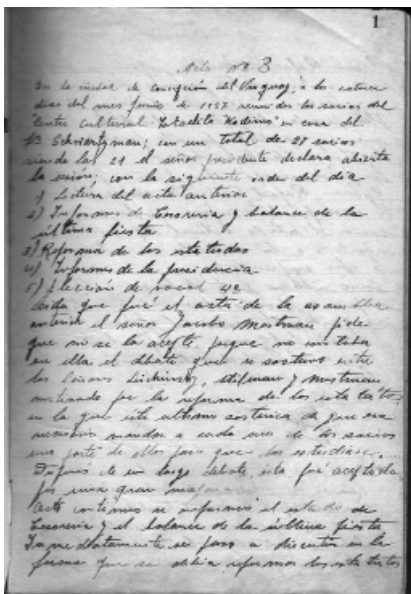 1
Acta Nº 3
En la ciudad de Concepción del Uruguay, a los catorce
dias del mes Junio de 1937 reunidos los socios del
"Centro Cultural Israelita Kadima" en casa del
Sr Schvartzman; con un total de 27 socios
siendo las 21 el señor presidente declara abierta
la sesión; con la siguiente orden del dia
1) Lectura del acta anterior
2) Informes de Tesoreria y balance de la
última fiesta
3) Reforma de los estatutos
4) Informes de la presidencia
5) Elección de vocal 4º
Leida que fué el acta de la asamblea
anterior el señor Jacobo pide
que no se la acepte, porque no
en ella el debate que se sostuvo entre
los señores Stilman y
motivado por la reforma de los estatutos
en la que este ultimo sostenia de que era
necesario mandar a cada uno de los socios
una parte de ellos para que los estudiase.
Despues de un largo debate, esta fué aceptada
por una gran mayoria
Acto continuo se informó el estado de
Tesoreria y el balance de la última fiesta
Inmediatamente se paso a discutir en la
forma que se debia reformar los estatutos